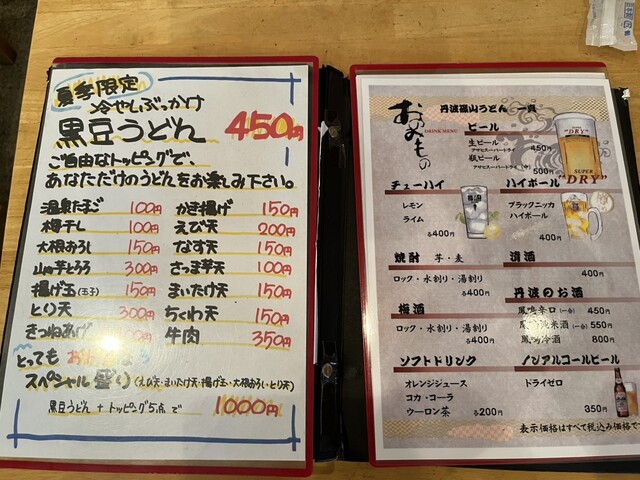 夏季限定
冷やしぶっかけ
黒豆うどん 450円
ご自由なトッピングで、
あなただけのうどんをお楽しみ下さい。
温泉たまご 100円 かき揚げ 150円
梅干し 100円 えび天 200円
大根おろし 150円 なす天 150円
山芋とろろ 300円 さつま芋天 100円
揚げ玉(玉子) 150円 まいたけ天 150円
とり天 300円 ちくわ天 150円
きつねあげ 牛肉 350円
とっても
スペシャル盛り(えび天・まいたけ天・揚げ玉・大根おろし・とり天)
黒豆うどん + トッピング5点で 1000円
丹波篠山うどん 一真
おのみもの
DRINK MENU
ビール
生ビール
アサヒスーパードライ 450円
瓶ビール
アサヒスーパードライ(中) 500円
"DRY"
SUPER
"DRY"
チューハイ
レモン
ライム
各400円
ハイボール
ブラックニッカ
ハイボール
400円
焼酎 芋・麦
ロック・水割り・湯割り
各400円
清酒
400円
梅酒
ロック・水割り・湯割り
各400円
丹波のお酒
鳳鳴辛口(一合) 450円
純米酒(一合) 550円
鳳鳴冷酒 800円
ソフトドリンク
オレンジジュース
コカ・コーラ
ウーロン茶 各200円
ノンアルコールビール
ドライゼロ
350円
表示価格はすべて税込み価格で